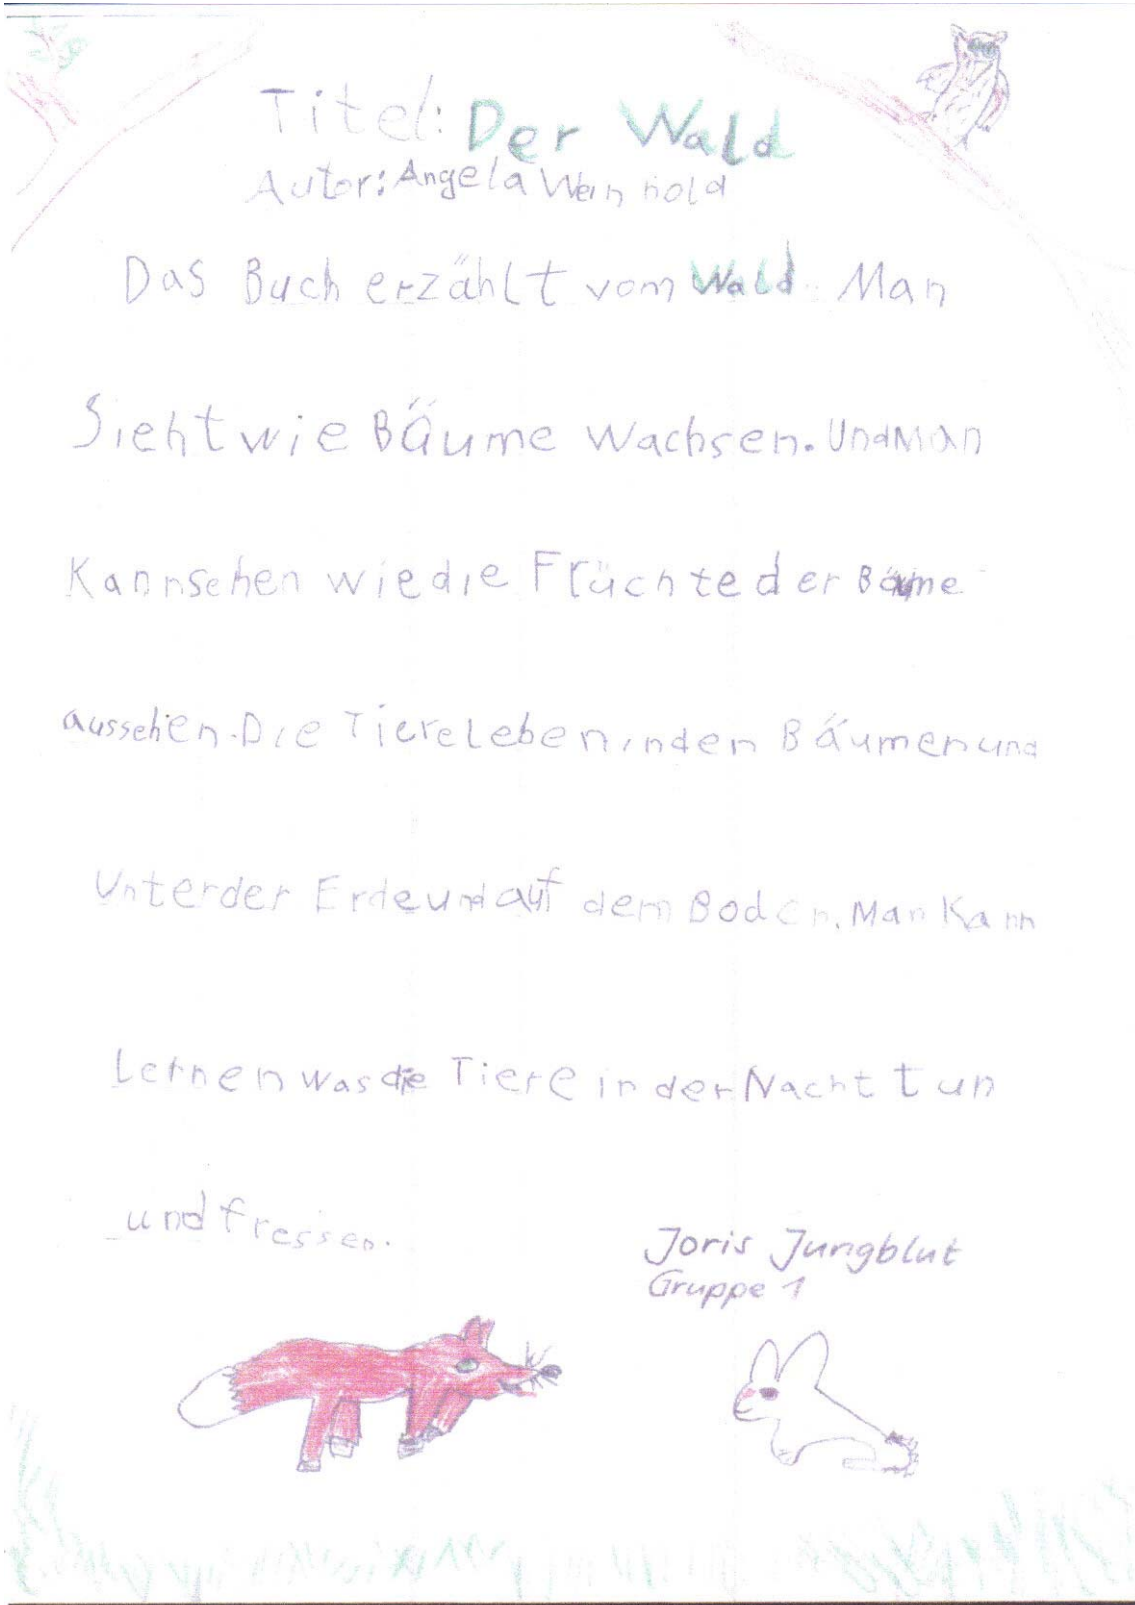 Titel: Der Wald
Autor: Angela Weinhold
Das Buch erzählt vom Wald. Man
Sieht wie Bäume Wachsen. Und Man
Kann sehen wie die Früchte der Bäume
aussehen. Die Tiere Leben in den Bäumen und
Unter der Erde und auf dem Boden. Man Kann
Lernen was die Tiere in der Nacht tun
und fressen.
Joris Jungblut
Gruppe 1